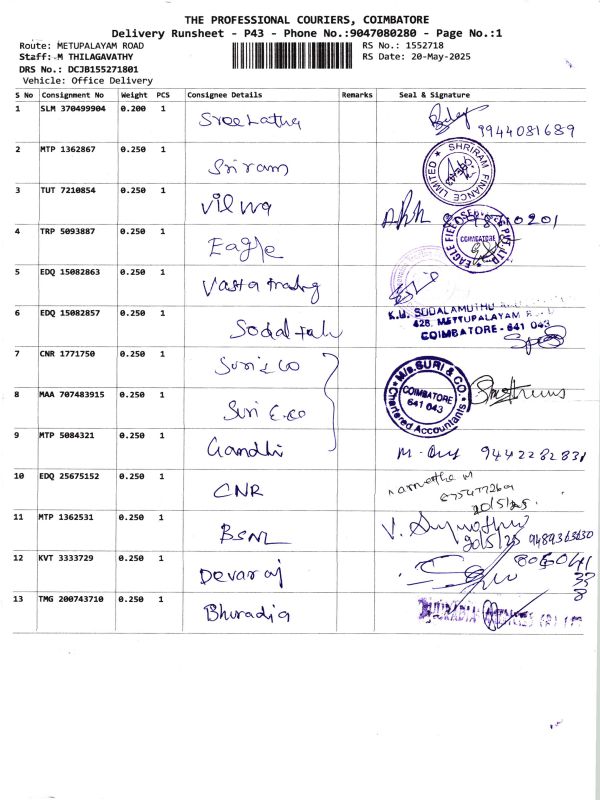 THE PROFESSIONAL COURIERS, COIMBATORE
Delivery Runsheet - P43 - Phone No.:9047080280 - Page No.:1
Route: METUPALAYAM ROAD RS No.: 1552718
Staff: M THILAGAVATHY RS Date: 20-May-2025
DRS No.: DCJB155271801
Vehicle: Office Delivery
S No Consignment No Weight PCS Consignee Details Remarks Seal & Signature
1 SLM 370499904 0.200 1 Sree Latha 9944081689
2 MTP 1362867 0.250 1 Sriram SHRIRAM FINANCE LIMITED
3 TUT 7210854 0.250 1 Vilwa
4 TRP 5093887 0.250 1 Eagle EAGLE FIELD SERVICES PVT. LTD. COIMBATORE
5 EDQ 15082863 0.250 1 Vasta trading
6 EDQ 15082857 0.250 1 K.U. SODALAMUTHU
428, METTUPALAYAM
COIMBATORE - 641 043
7 CNR 1771750 0.250 1 Suri & Co M/s. SURI & CO. COIMBATORE 641 043 Chartered Accountants
8 MAA 707483915 0.250 1 Suri & co
9 MTP 5084321 0.250 1 Gandhi 9442282831
10 EDQ 25675152 0.250 1 CNR
20/5/25.
11 MTP 1362531 0.250 1 BSNL 20/5/25
12 KVT 3333729 0.250 1 Devaraj
13 TMG 200743710 0.250 1 Bhuradia